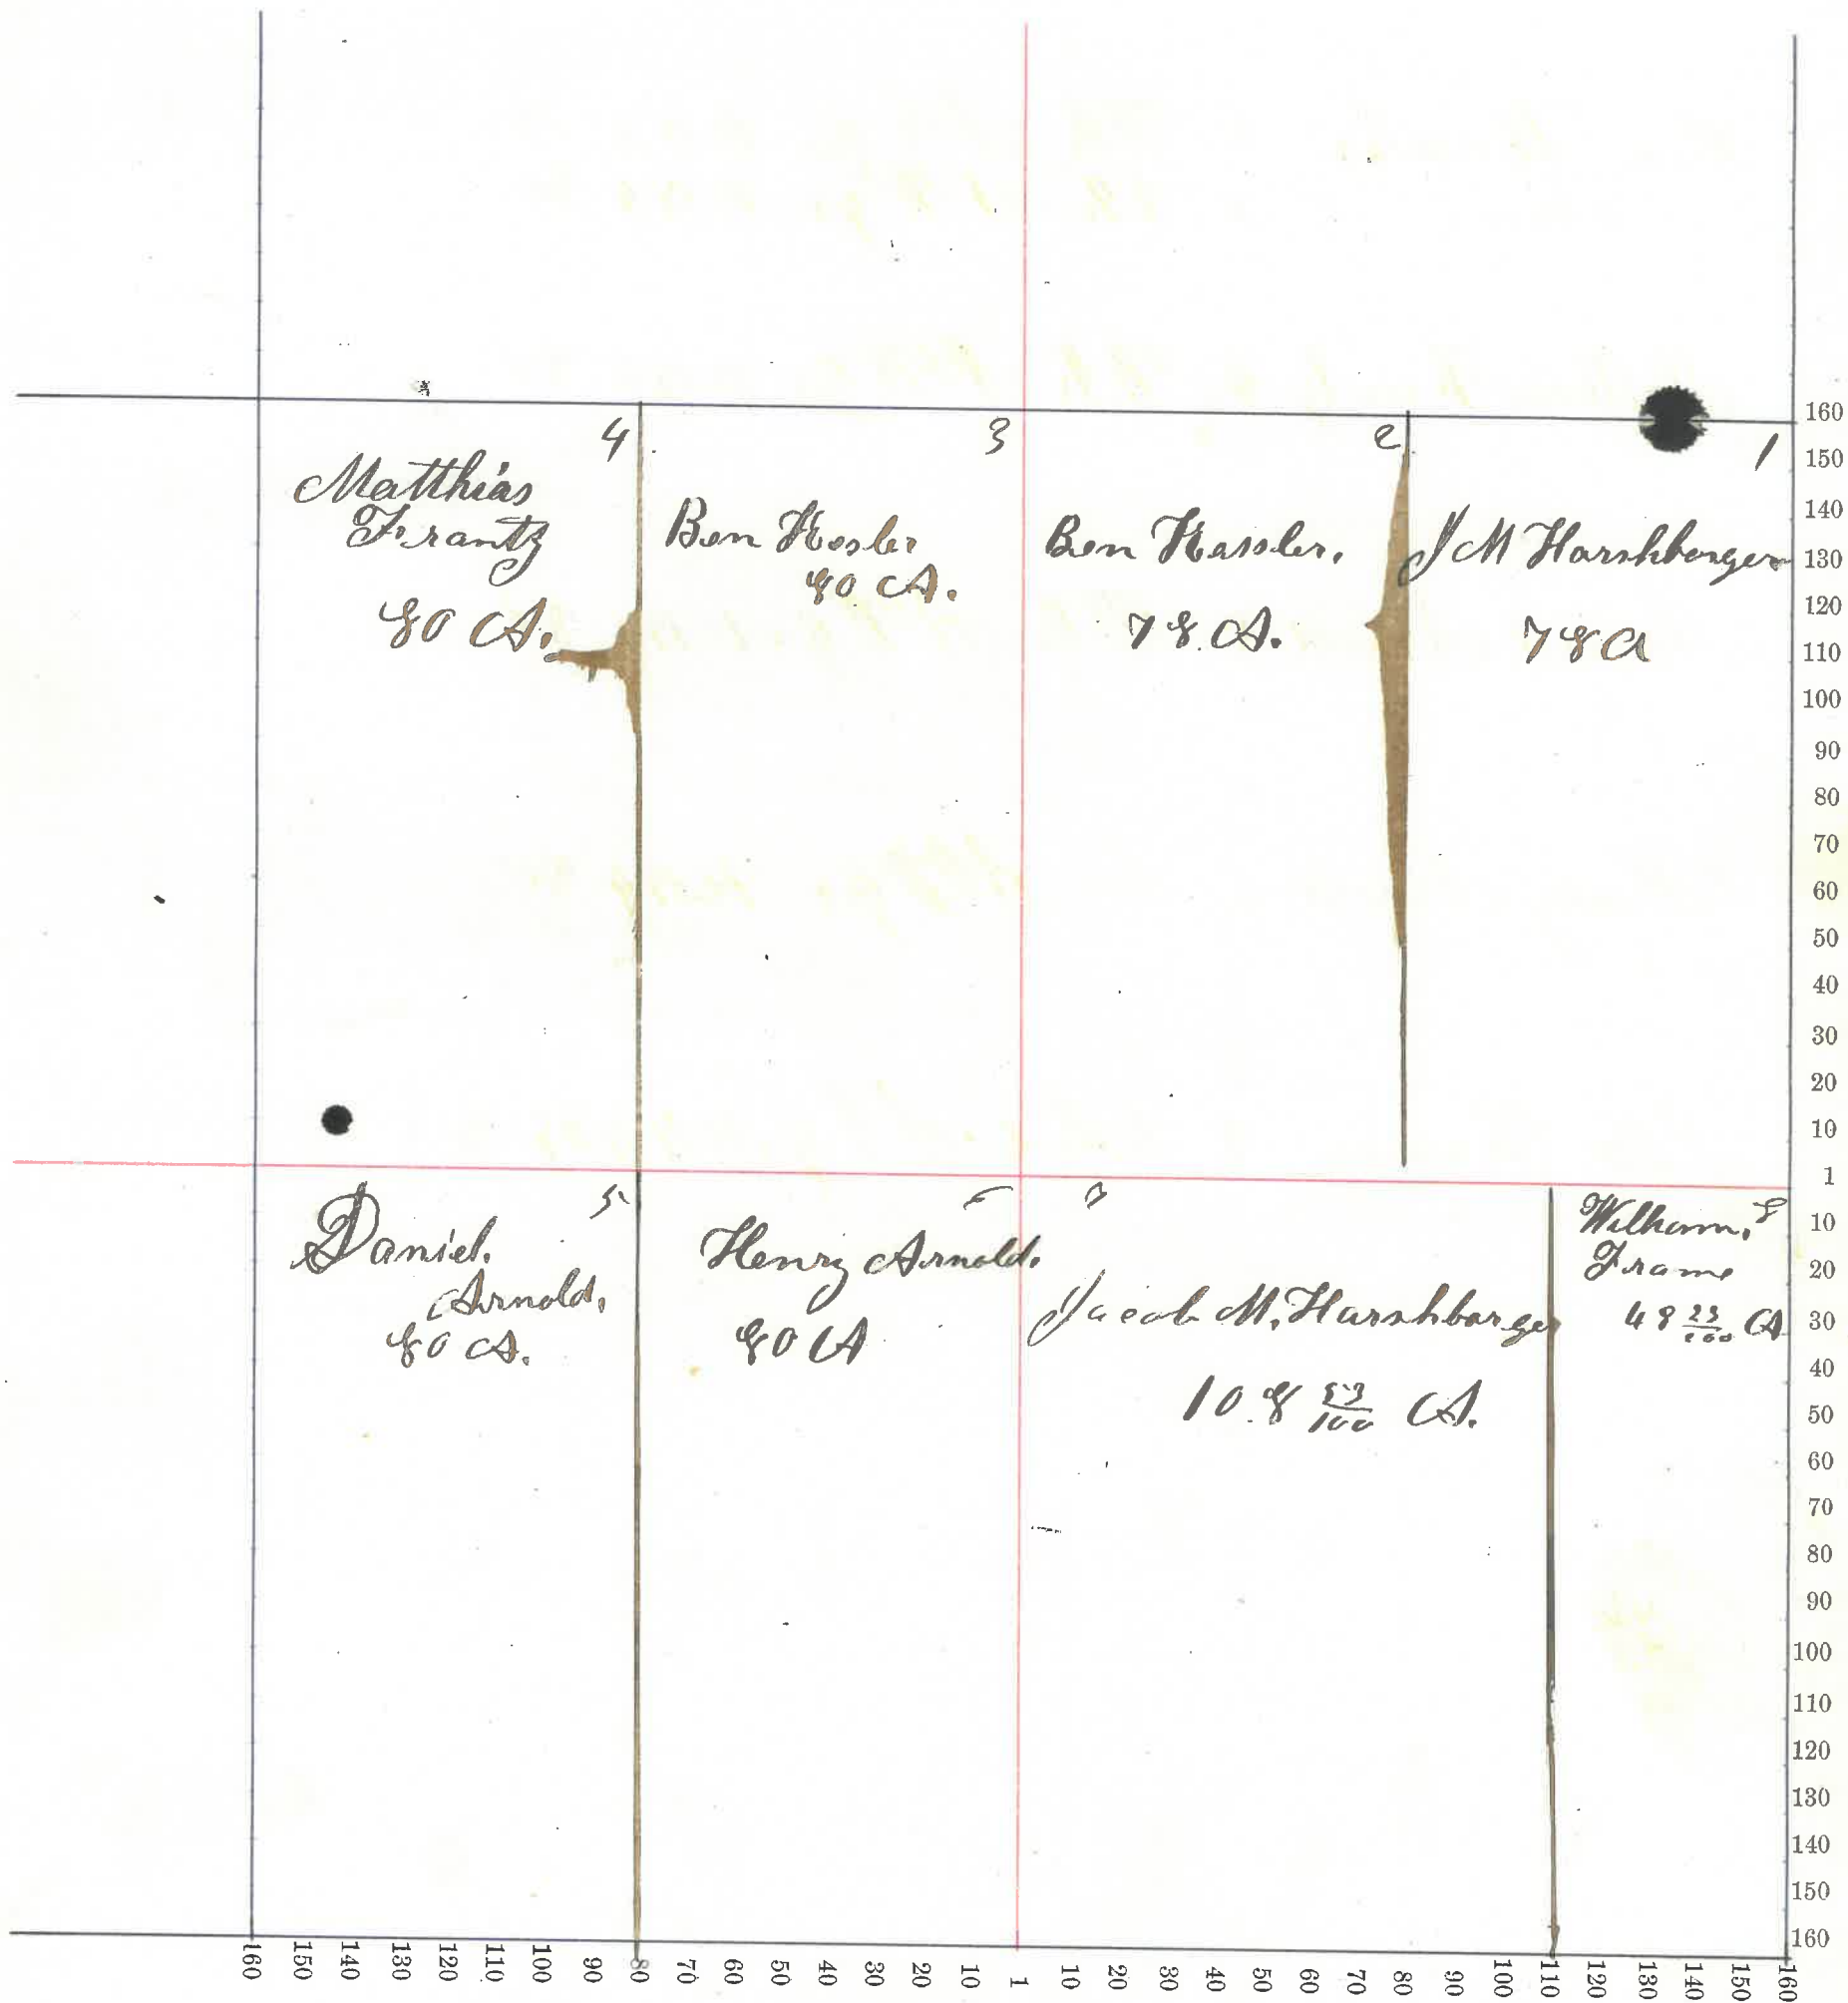 4
Matthias
Frantz
80 A.
3
Ben Hosler
80 A.
2
Ben Hassler.
78. A.
1
J M Harshbarger
78 A
5
Daniel.
Arnold.
80 A.
6
Henry Arnold.
80 A
7
Jacob M. Harshbarger
108 53/100 A.
8
William.
Frame
48 23/100 A
160
150
140
130
120
110
100
90
80
70
60
50
40
30
20
10
1
10
20
30
40
50
60
70
80
90
100
110
120
130
140
150
160
160 150 140 130 120 110 100 90 80 70 60 50 40 30 20 10 1 10 20 30 40 50 60 70 80 90 100 110 120 130 140 150 160